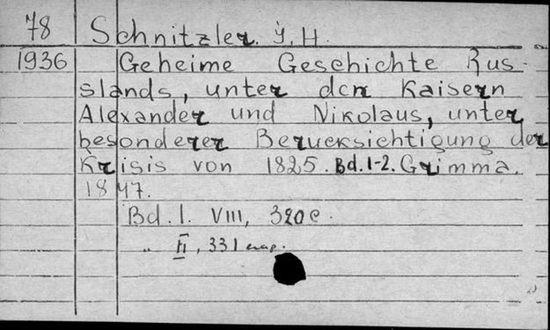 78 Schnitzler. J. H.
1936 Geheime Geschichte Rus-
slands, unter den Kaisern
Alexander und Nikolaus, unter
besonderer Berucksichtigung der
Krisis von 1825. Bd. 1-2. Grimma.
1847.
Bd. I. VIII, 320 c.
„ II, 331